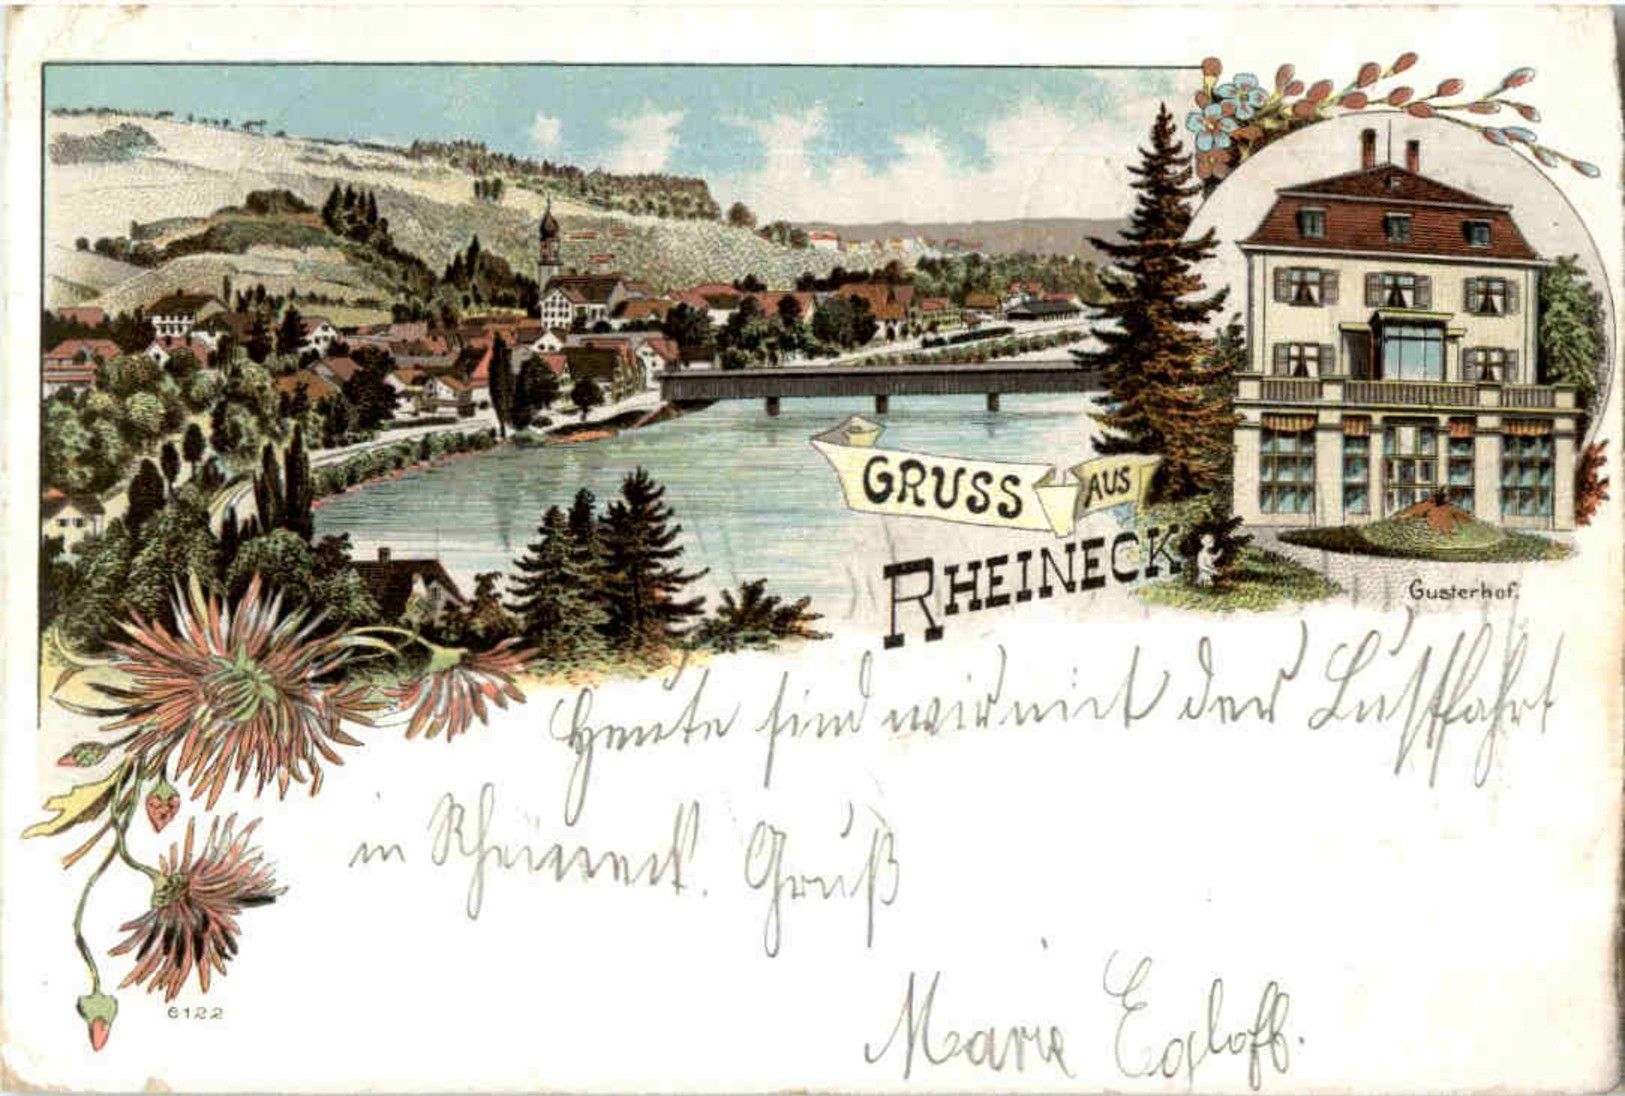 GRUSS AUS
RHEINECK
Gusterhof.
Heute sind wir mit der Lustfahrt
in Rheineck. Gruß
Marie Egloff.
6122